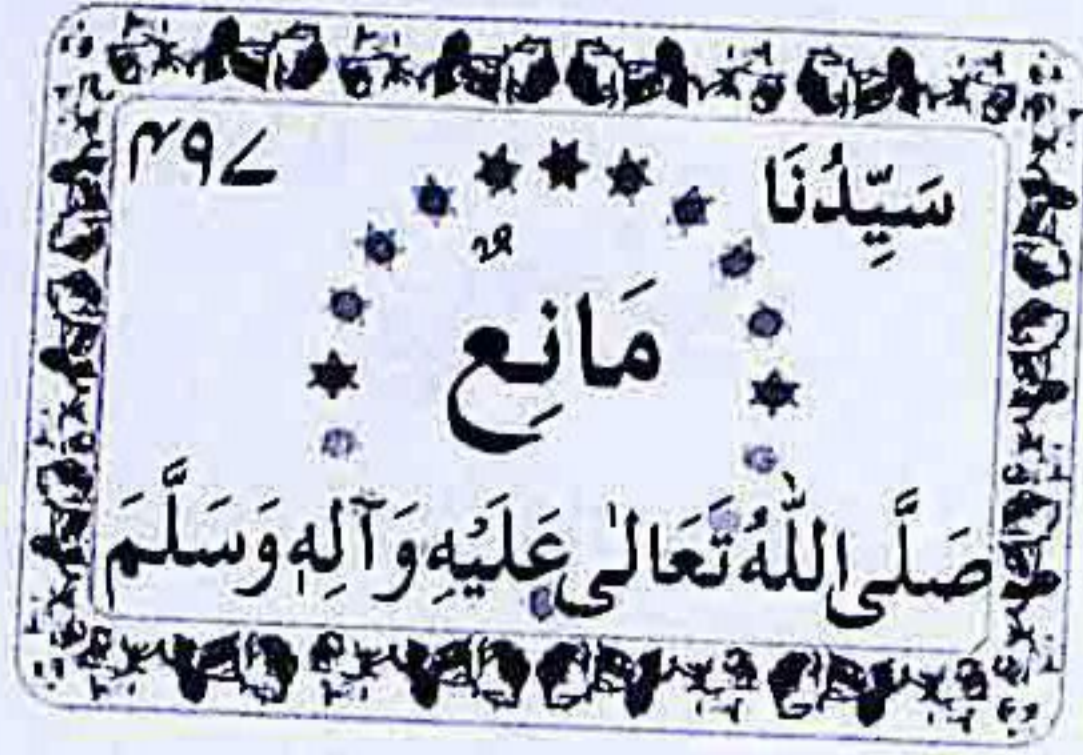 سَيِّدُنَا
۴۹۷
مَانِعٌ
صَلَّى اللّٰهُ تَعَالٰى عَلَيْهِ وَآلِهٖ وَسَلَّمَ